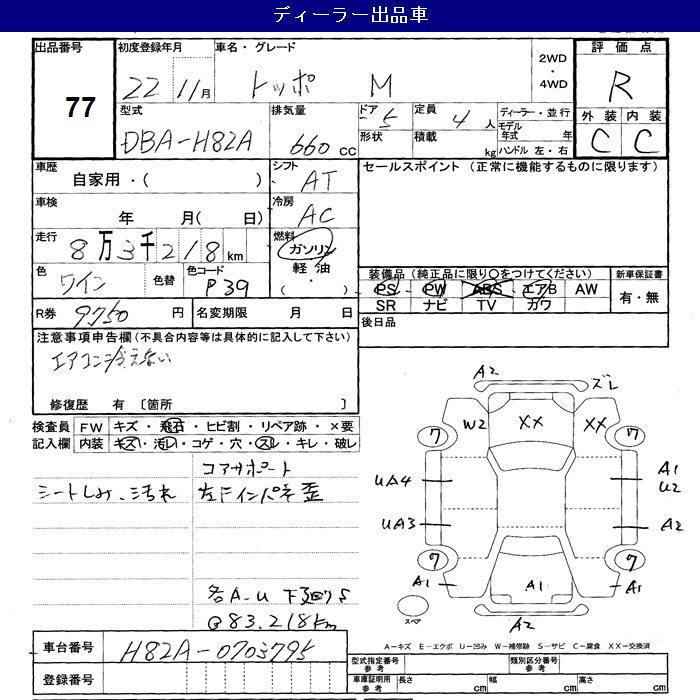 ディーラー出品車
出品番号 77
初度登録年月 22 11月
車名・グレード トッポ M
2WD・4WD
評価点 R
外装 C 内装 C
型式 DBA-H82A
排気量 660 cc
ドア 5 形状
定員 4 人 積載 kg
ディーラー・並行
モデル年式 年
ハンドル 左・右
車歴 自家用・( )
シフト AT
セールスポイント (正常に機能するものに限ります)
車検 年 月( 日)
冷房 AC
走行 8万3千218km
燃料 ガソリン 軽油・( )
色 ワイン 色替 色コード P39
装備品(純正品に限り○をつけてください)
PS PW ABS エアB AW
SR ナビ TV カワ
新車保証書 有・無
R券 9750 円
名変期限 月 日
後日品
注意事項申告欄(不具合内容等は具体的に記入して下さい)
エアコン冷えない
修復歴 有 〔箇所 〕
検査員記入欄
FW キズ・飛石・ヒビ割・リペア跡・×要
内装 キズ・汚レ・コゲ・穴・スレ・キレ・破レ
コアサポート
シートしみ、汚れ 左Fインパネ歪
各A-U 下廻りS
@83,218km
A2 ズレ
7 W2 XX XX 7
UA4 A1 U2
UA3 A2
7 7
A1 A1 A1
スペア A2
A-キズ E-エクボ U-凹み W-補修跡 S-サビ C-腐食 XX-交換済
車台番号 H82A-0703795
登録番号
型式指定番号 参考 類別区分番号 参考
車庫証明用 参考 長さ cm 幅 cm 高さ cm